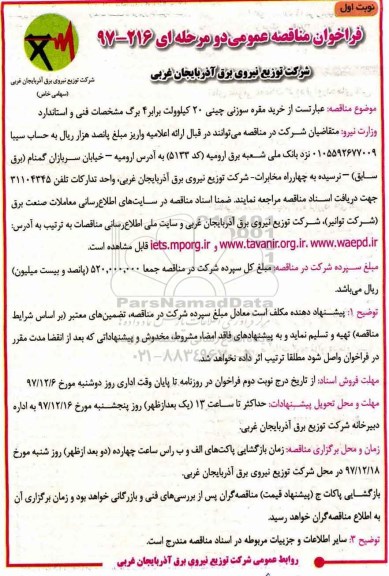 نوبت اول
فراخوان مناقصه عمومی دو مرحله ای ۲۱۶-۹۷
شرکت توزیع نیروی برق آذربایجان غربی
شرکت توزیع نیروی برق آذربایجان غربی
(سهامی خاص)
موضوع مناقصه: عبارتست از خرید مقره سوزنی چینی ۲۰ کیلوولت برابر ۴ برگ مشخصات فنی و استاندارد
وزارت نیرو: متقاضیان شرکت در مناقصه می‌توانند در قبال ارائه اعلامیه واریز مبلغ پانصد هزار ریال به حساب سیبا
۰۱۰۵۵۹۲۶۷۷۰۰۹ نزد بانک ملی شعبه برق ارومیه (کد ۵۱۳۳) به آدرس ارومیه – خیابان سربازان گمنام (برق
سابق) – نرسیده به چهارراه مخابرات– شرکت توزیع نیروی برق آذربایجان غربی، واحد تدارکات تلفن ۳۱۱۰۴۳۴۵
جهت دریافت اسناد مناقصه مراجعه نمایند. ضمنا اسناد مناقصه در سایت‌های اطلاع‌رسانی معاملات صنعت برق
(شرکت توانیر)، شرکت توزیع نیروی برق آذربایجان غربی و سایت ملی اطلاع‌رسانی مناقصات به ترتیب به آدرس:
www.tavanir.org.ir. www.waepd.ir و iets.mporg.ir قابل مشاهده است.
مبلغ سپرده شرکت در مناقصه: مبلغ کل سپرده شرکت در مناقصه جمعا ۵۲۰,۰۰۰,۰۰۰ (پانصد و بیست میلیون)
ریال می‌باشد.
توضیح ۱: پیشنهاد دهنده مکلف است معادل مبلغ سپرده شرکت در مناقصه، تضمین‌های معتبر (بر اساس شرایط
مناقصه) تهیه و تسلیم نماید و به پیشنهادهای فاقد امضاء، مشروط، مخدوش و پیشنهاداتی که بعد از انقضا مدت مقرر
در فراخوان واصل شود مطلقا ترتیب اثر داده نخواهد شد.
مهلت فروش اسناد: از تاریخ درج نوبت دوم فراخوان در روزنامه تا پایان وقت اداری روز دوشنبه مورخ ۹۷/۱۲/۶
مهلت و محل تحویل پیشنهادات: حداکثر تا ساعت ۱۳ (یک بعدازظهر) روز پنجشنبه مورخ ۹۷/۱۲/۱۶ به اداره
دبیرخانه شرکت توزیع برق آذربایجان غربی.
زمان و محل برگزاری مناقصه: زمان بازگشایی پاکت‌های الف و ب راس ساعت چهارده (دو بعد ازظهر) روز شنبه مورخ
۹۷/۱۲/۱۸ در محل شرکت توزیع نیروی برق آذربایجان غربی.
بازگشایی پاکات ج (پیشنهاد قیمت) مناقصه‌گران پس از بررسی‌های فنی و بازرگانی خواهد بود و زمان برگزاری آن
به اطلاع مناقصه‌گران خواهد رسید.
توضیح ۳: سایر اطلاعات و جزییات مربوطه در اسناد مناقصه مندرج است.
روابط عمومی شرکت توزیع نیروی برق آذربایجان غربی
ParsNamadData